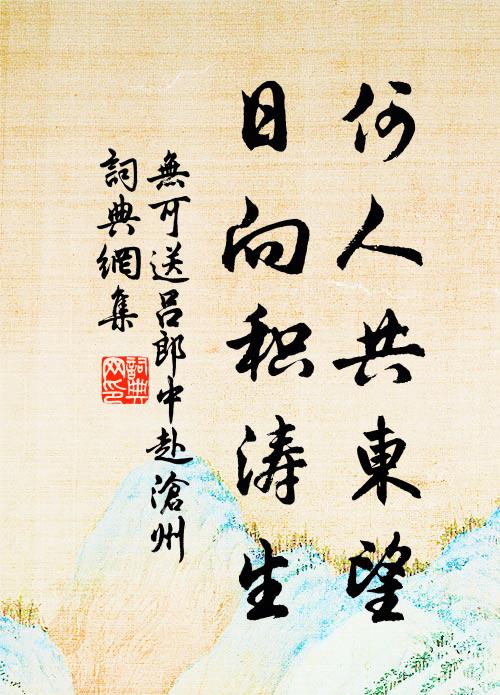 何人共東望
日向积涛生
無可送吕郎中赴滄州
詞典網集
詞典網印